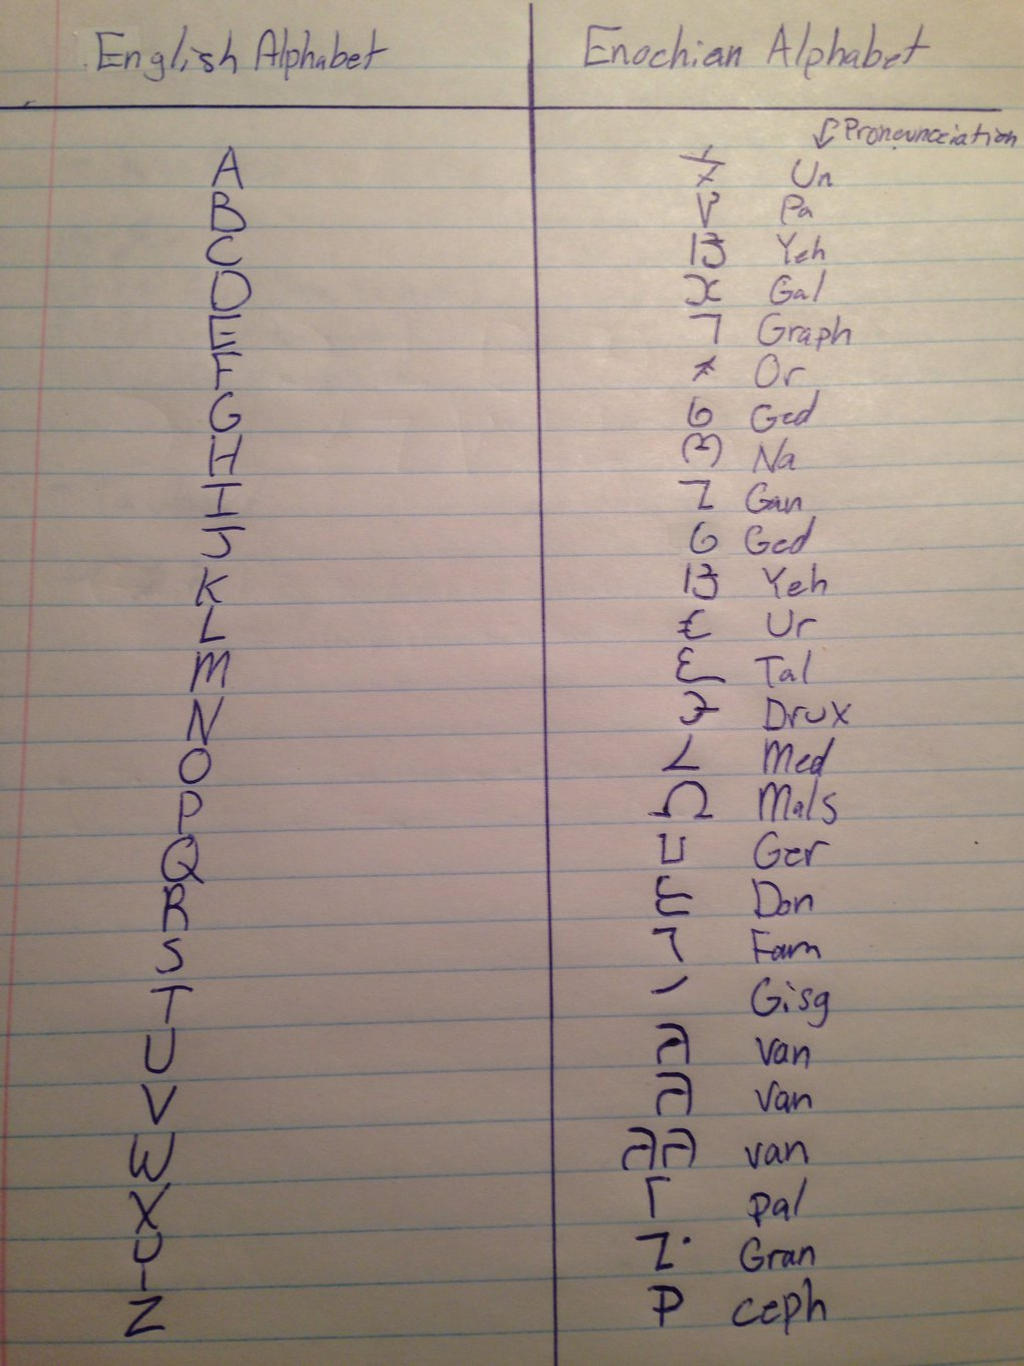 English Alphabet Enochian Alphabet
Pronounciation
A Un
B Pa
C Yeh
D Gal
E Graph
F Or
G Ged
H Na
I Gan
J Ged
K Yeh
L Ur
M Tal
N Drux
O Med
P Mals
Q Ger
R Don
S Fam
T Gisg
U van
V van
W van
X pal
Y Gran
Z ceph